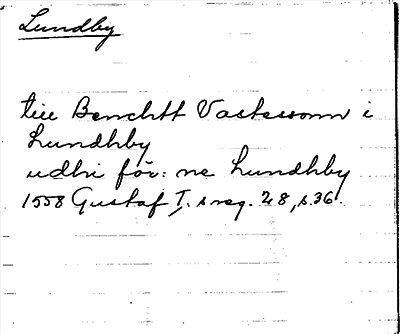 Lundby
till Benchtt Vastessonn i
Lundhby
udhi för: ne Lundhby
1558 Gustaf I. s reg. 28, s. 36.